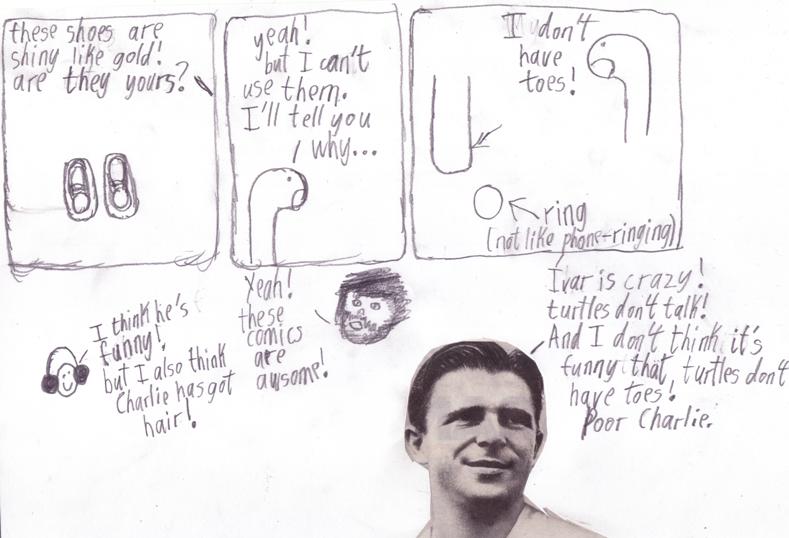 these shoes are
shiny like gold!
are they yours?
yeah!
but I can't
use them.
I'll tell you
why...
I don't
have
toes!
ring
(not like phone-ringing)
I think he's
funny!
but I also think
Charlie has got
hair!
Yeah!
these
comics
are
awsome!
Ivar is crazy!
turtles don't talk!
And I don't think it's
funny that turtles don't
have toes!
Poor Charlie.